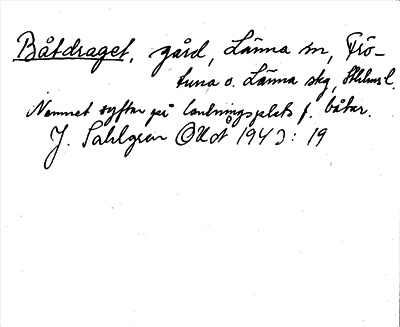 Båtdraget, gård, Länna sn, Frö-
tuna o. Länna skg, Sthlms l.
Namnet syftar på landningsplats f. båtar.
J. Sahlgren OUot 1943: 19